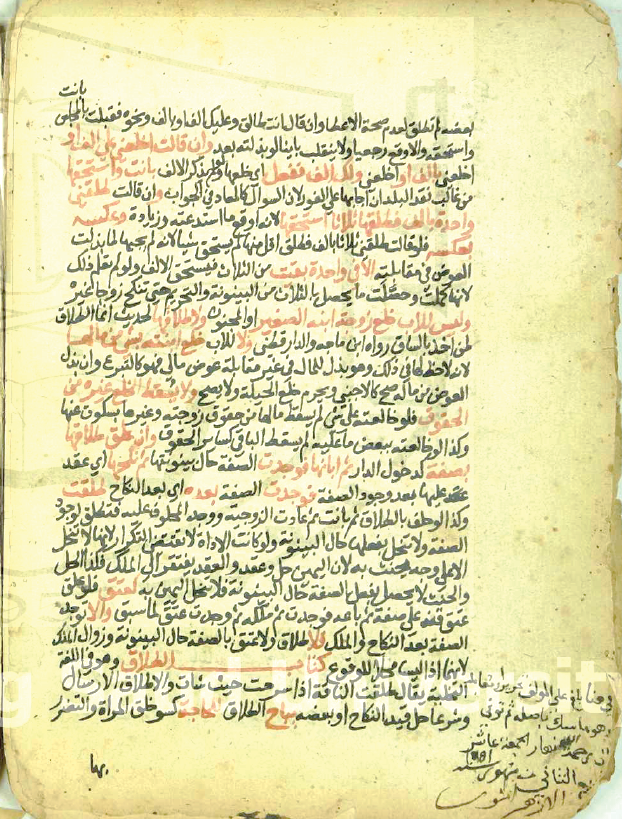 بانت
بعضه لم تطلق لعدم صحة الاعطا وان قال انت طالق وعليك الف او بالف ونحوه فقبلت بالمجلس
واستحقه والا وقع رجعيا ولا ينقلب باينا لو بذلته بعد وان قالت اخلعني على الف او
اخلعني بالف او اخلعني ولك الف ففعل اي خلعها ولو لم يذكر الالف بانت واستحقها
من غالب نقد البلد ان اجابها على الفور لان السوال كالمعاد في الجواب وان قالت طلقني
واحدة بالف فطلقها ثلاثا استحقها لانه اوقع ما استدعته وزيادة وعكسه
بعكسه فلو قالت طلقني ثلاثا بالف فطلق اقل منها لم يستحق شيا لانه لم يجبها لما بذلت
العوض في مقابلته الا في واحدة بقيت من الثلاث فيستحق الالف ولو لم تعلم ذلك
لانها كملت وحصلت ما يحصل بالثلاث من البينونة والتحريم حتى تنكح زوجا غيره
وليس للاب خلع زوجة ابنه الصغير او المجنون ولا طلاقها لحديث انما الطلاق
لمن اخذ بالساق رواه ابن ماجه والدارقطني ولا للاب خلع ابنته بشي من مالها
لانه لا حظ لها في ذلك وهو بذل للمال في غير مقابلة عوض مالي فهو كالتبرع وان بذل
العوض من ماله صح كالاجنبي ويحرم خلع الحيلة ولا يصح ولا يسقط الخلع غيره من
الحقوق فلو خالعته على شي لم يسقط ما لها من حقوق زوجته وغيرها بسكوت عنها
وكذا لو خالعته ببعض ما عليه لم يسقط الباقي كساير الحقوق وان علق طلاقها
بصفة كدخول الدار ثم ابانها فوجدت الصفة حال بينونتها ثم نكحها اي عقد
عقد عليها بعد وجود الصفة فوجدت الصفة بعده اي بعد النكاح طلقت
وكذا لو حلف بالطلاق ثم بانت ثم عادت الزوجية ووجد المحلوف عليه فتطلق لوجود
الصفة ولا تنحل بفعلها حال البينونة ولو كانت الاداة لا تقتضي التكرار لانها لا تنحل
الا على وجه يحنث به لان اليمين حل وعقد والعقد يفتقر الى الملك فكذا الحل
والحنث لا يحصل بفعل الصفة حال البينونة فلا تنحل اليمين به كعتق فلو علق
عتق قنه على صفة ثم باعه فوجدت ثم ملكه ثم وجدت عتق لما سبق والا توجد
الصفة بعد النكاح والملك فلا طلاق ولا عتق بالصفة حال البينونة وزوال الملك
لانهما اذا ليسا محلا للوقوع كتاب الطلاق وهو في اللغة
التخلية يقال طلقت الناقة اذا سرحت حيث شات والاطلاق الارسال
وشرعا حل قيد النكاح او بعضه يباح الطلاق للحاجة كسو خلق المراة والتضرر
بها